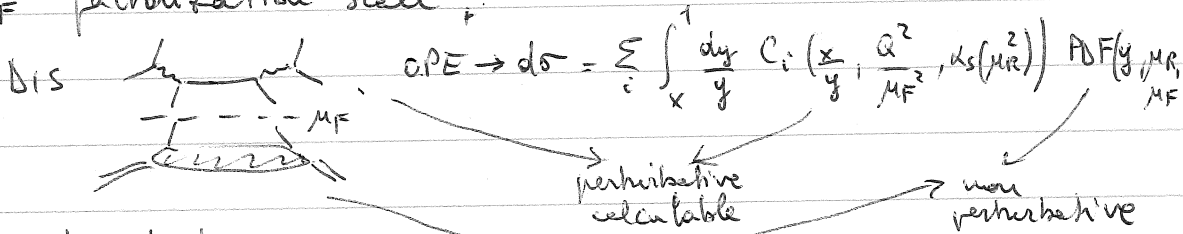 factorization scale :
DIS OPE → dσ = Σ_i ∫_x^1 dy/y C_i (x/y, Q²/μ_F², αs(μ_R²)) PDF(y, μ_R, μ_F
--- μ_F
perturbative non
calculable perturbative